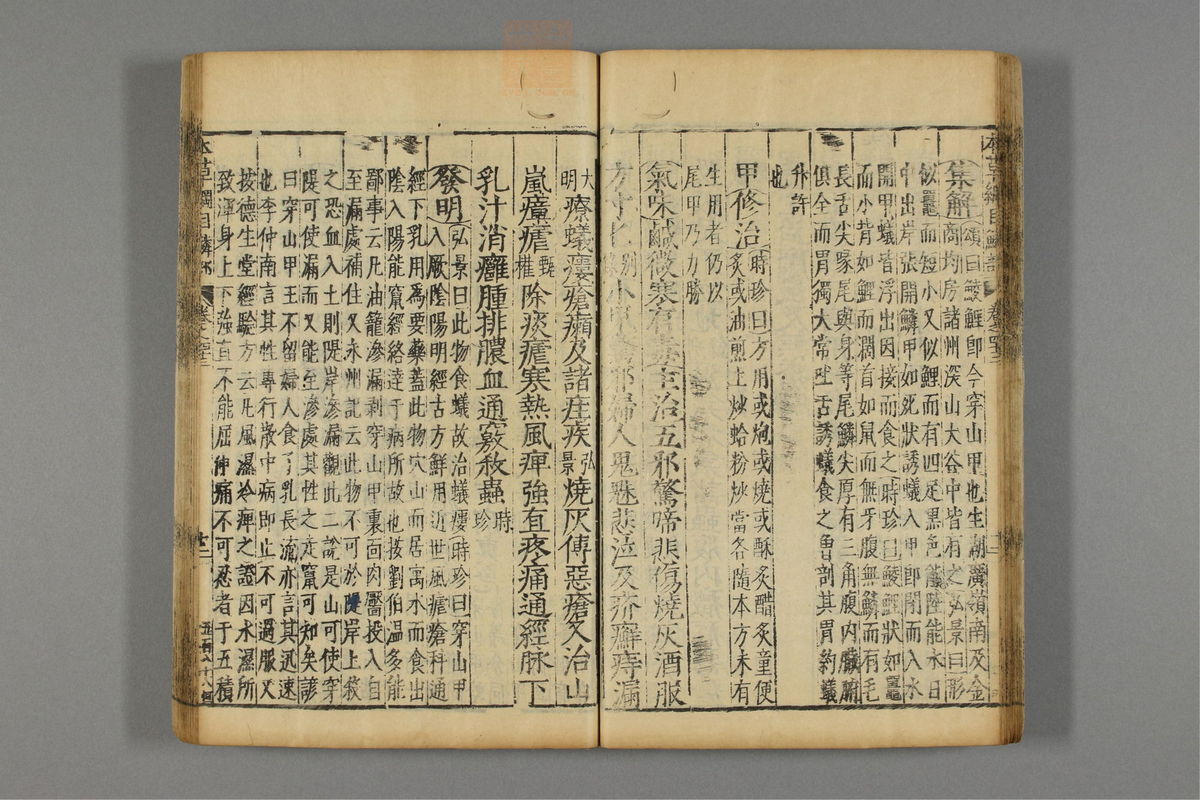 集解頌曰鯪鯉即今穿山甲也生湖廣嶺南及金
商均房諸州深山大谷中皆有之弘景曰形
似鼉而短小又似鯉而有四足黑色能陸能水日
中出岸張開鱗甲如死狀誘蟻入甲即閉而入水
開甲蟻皆浮出因接而食之時珍曰鯪鯉狀如鼉
而小背如鯉而濶首如鼠而無牙腹無鱗而有毛
長舌尖喙尾與身等尾鱗尖厚有三角腹內臟腑
俱全而胃獨大常吐舌誘蟻食之曾剖其胃約蟻
升許
也
甲修治時珍曰方用或炮或燒或酥炙醋炙童便
炙或油煎土炒蛤粉炒當各隨本方未有
生用者仍以
尾甲乃力勝
氣味鹹微寒有毒主治五邪驚啼悲傷燒灰酒服
方寸匕別錄小兒驚邪婦人鬼魅悲泣及疥癬痔漏
大明療蟻瘻瘡癩及諸疰疾弘景燒灰傅惡瘡又治山
嵐瘴瘧甄權除痰瘧寒熱風痺強直疼痛通經脉下
乳汁消癰腫排膿血通竅殺蟲時珍
發明弘景曰此物食蟻故治蟻瘻時珍曰穿山甲
入厥陰陽明經古方鮮用近世風瘧瘡科通
經下乳用爲要藥蓋此物穴山而居寓水而食出
陰入陽能竄經絡達于病所故也按劉伯温多能
鄙事云凡油籠滲漏剥穿山甲裏面肉靨投入自
至漏處補住又永州記云此物不可於隄岸上殺
之恐血入土則隄岸滲漏觀此二說是山可使穿
隄可使漏而又能至滲處其性之走竄可知矣諺
曰穿山甲王不留婦人食了乳長流亦言其迅速
也李仲南言其性專行散中病即止不可過服又
按德生堂經驗方云凡風濕冷痺之證因水濕所
致渾身上下強直不能屈伸痛不可忍者于五積
本草綱目鱗部
卷之四十三